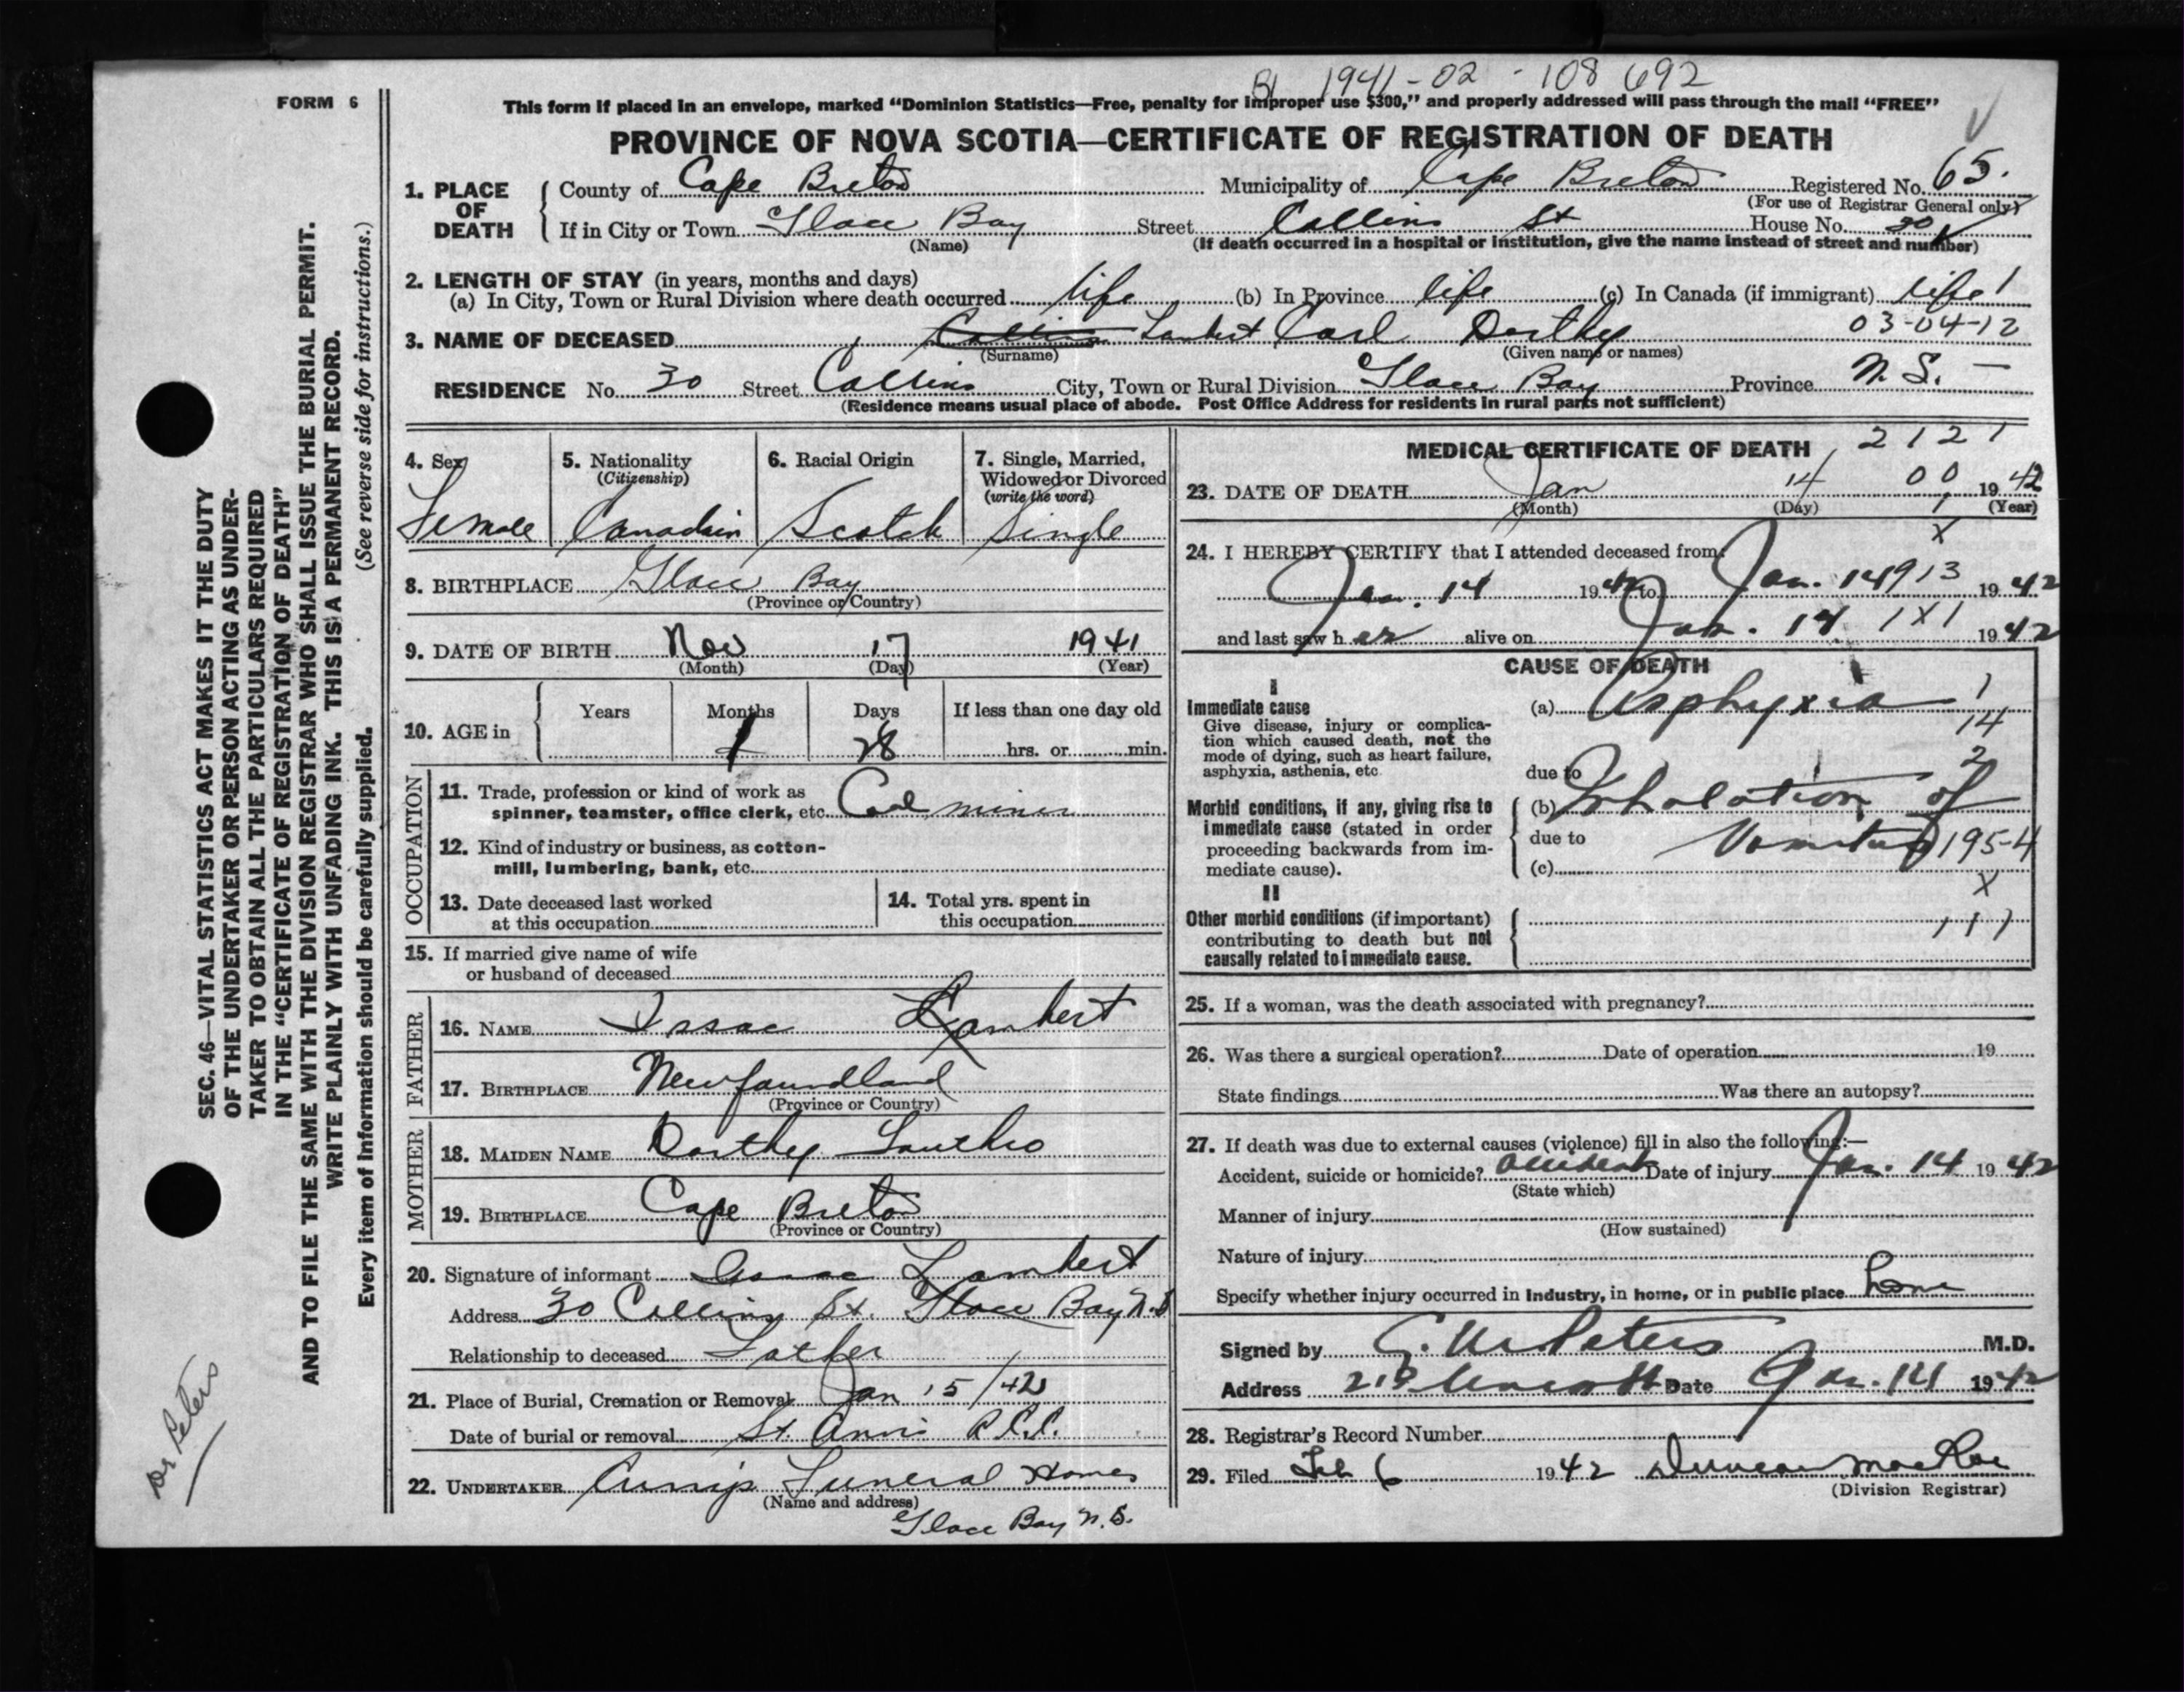 B 1941-02-108692
FORM 6
This form if placed in an envelope, marked “Dominion Statistics—Free, penalty for improper use $300,” and properly addressed will pass through the mail “FREE”
PROVINCE OF NOVA SCOTIA—CERTIFICATE OF REGISTRATION OF DEATH
1. PLACE OF DEATH
County of Cape Breton Municipality of Cape Breton Registered No. 65.
(For use of Registrar General only)
If in City or Town Glace Bay Street Collins St House No. 30
(Name) (If death occurred in a hospital or institution, give the name instead of street and number)
2. LENGTH OF STAY (in years, months and days)
(a) In City, Town or Rural Division where death occurred life (b) In Province life (c) In Canada (if immigrant) life 1
03-04-12
3. NAME OF DECEASED Collins Lambert Carl Dorthy
(Surname) (Given name or names)
RESIDENCE No. 30 Street Collins City, Town or Rural Division Glace Bay Province N.S. —
(Residence means usual place of abode. Post Office Address for residents in rural parts not sufficient)
4. Sex
Female
5. Nationality
(Citizenship)
Canadian
6. Racial Origin
Scotch
7. Single, Married, Widowed or Divorced
(write the word)
Single
8. BIRTHPLACE Glace Bay
(Province or Country)
9. DATE OF BIRTH Nov 17 1941
(Month) (Day) (Year)
10. AGE in Years Months Days If less than one day old
1 28 hrs. or min.
OCCUPATION
11. Trade, profession or kind of work as
spinner, teamster, office clerk, etc. Coal miner
12. Kind of industry or business, as cotton-
mill, lumbering, bank, etc.
13. Date deceased last worked
at this occupation
14. Total yrs. spent in
this occupation
15. If married give name of wife
or husband of deceased
FATHER
16. NAME Issac Lambert
17. BIRTHPLACE Newfoundland
(Province or Country)
MOTHER
18. MAIDEN NAME Dorthy
19. BIRTHPLACE Cape Breton
(Province or Country)
20. Signature of informant Isaac Lambert
Address 30 Collins St. Glace Bay N.S
Relationship to deceased Father
21. Place of Burial, Cremation or Removal Jan 15/42
Date of burial or removal St. Anns
22. UNDERTAKER Funeral Homes
(Name and address)
Glace Bay N.S.
MEDICAL CERTIFICATE OF DEATH 2121
23. DATE OF DEATH Jan 14 00 1942
(Month) (Day) 1 (Year)
x
24. I HEREBY CERTIFY that I attended deceased from
Jan. 14 1942 to Jan. 14 913 1942
and last saw her alive on Jan. 14 1X1 1942
CAUSE OF DEATH
I
Immediate cause
Give disease, injury or complica-
tion which caused death, not the
mode of dying, such as heart failure,
asphyxia, asthenia, etc.
(a) Asphyxia 1
14
2
due to
Morbid conditions, if any, giving rise to
immediate cause (stated in order
proceeding backwards from im-
mediate cause).
(b) Inhalation of
due to Vomitus 195-4
(c)
X
II
Other morbid conditions (if important)
contributing to death but not
causally related to immediate cause.
111
25. If a woman, was the death associated with pregnancy?
26. Was there a surgical operation? Date of operation 19
State findings Was there an autopsy?
27. If death was due to external causes (violence) fill in also the following:—
Accident, suicide or homicide? accident Date of injury Jan. 14 1942
(State which)
Manner of injury
(How sustained)
Nature of injury
Specify whether injury occurred in industry, in home, or in public place home
Signed by Peters M.D.
Address Date Jan. 14 1942
28. Registrar's Record Number
29. Filed Feb 6 1942 Duncan MacRae
(Division Registrar)
SEC. 46—VITAL STATISTICS ACT MAKES IT THE DUTY
OF THE UNDERTAKER OR PERSON ACTING AS UNDER-
TAKER TO OBTAIN ALL THE PARTICULARS REQUIRED
IN THE “CERTIFICATE OF REGISTRATION OF DEATH”
AND TO FILE THE SAME WITH THE DIVISION REGISTRAR WHO SHALL ISSUE THE BURIAL PERMIT.
WRITE PLAINLY WITH UNFADING INK. THIS IS A PERMANENT RECORD.
Every item of information should be carefully supplied. (See reverse side for instructions.)
Dr Peters